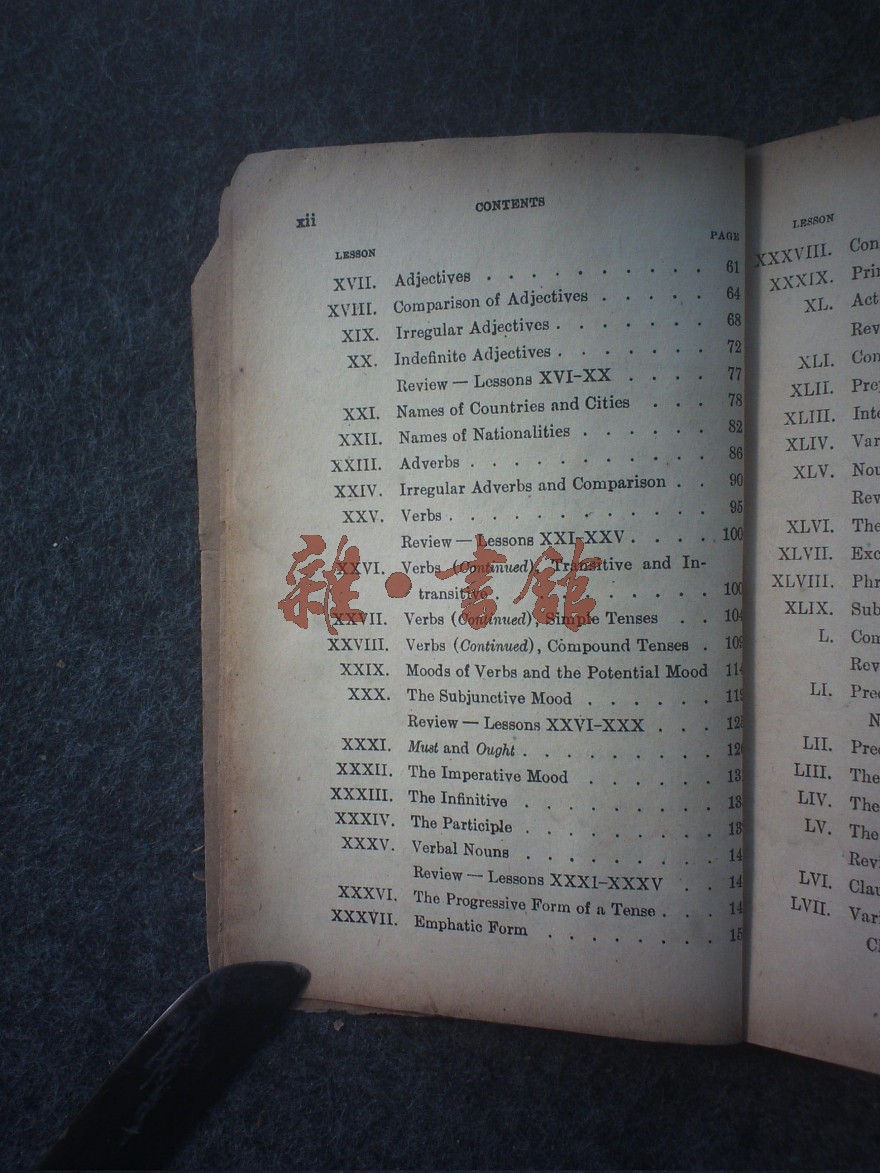 xii
CONTENTS
LESSON
PAGE
XVII. Adjectives . . . . . . . . . . 61
XVIII. Comparison of Adjectives . . . . . 64
XIX. Irregular Adjectives . . . . . . . 68
XX. Indefinite Adjectives . . . . . . . 72
Review — Lessons XVI–XX . . . . 77
XXI. Names of Countries and Cities . . . 78
XXII. Names of Nationalities . . . . . . 82
XXIII. Adverbs . . . . . . . . . . . 86
XXIV. Irregular Adverbs and Comparison . . 90
XXV. Verbs . . . . . . . . . . . . 95
Review — Lessons XXI–XXV . . . . 100
XXVI. Verbs (Continued), Transitive and In-
transitive . . . . . . . . . . 100
XXVII. Verbs (Continued), Simple Tenses . . 104
XXVIII. Verbs (Continued), Compound Tenses . 109
XXIX. Moods of Verbs and the Potential Mood 114
XXX. The Subjunctive Mood . . . . . . 119
Review — Lessons XXVI–XXX . . . 125
XXXI. Must and Ought . . . . . . . . 126
XXXII. The Imperative Mood . . . . . . 13
XXXIII. The Infinitive . . . . . . . . 13
XXXIV. The Participle . . . . . . . . 13
XXXV. Verbal Nouns . . . . . . . . 14
Review — Lessons XXXI–XXXV . . 14
XXXVI. The Progressive Form of a Tense . . . 14
XXXVII. Emphatic Form . . . . . . . 15
雜·書館
LESSON
XXXVIII. Con
XXXIX. Pri
XL. Act
Rev
XLI. Con
XLII. Pre
XLIII. Inte
XLIV. Var
XLV. Nou
Rev
XLVI. The
XLVII. Exc
XLVIII. Phr
XLIX. Sub
L. Com
Rev
LI. Prec
N
LII. Prec
LIII. The
LIV. The
LV. The
Revi
LVI. Clau
LVII. Vari
Cl